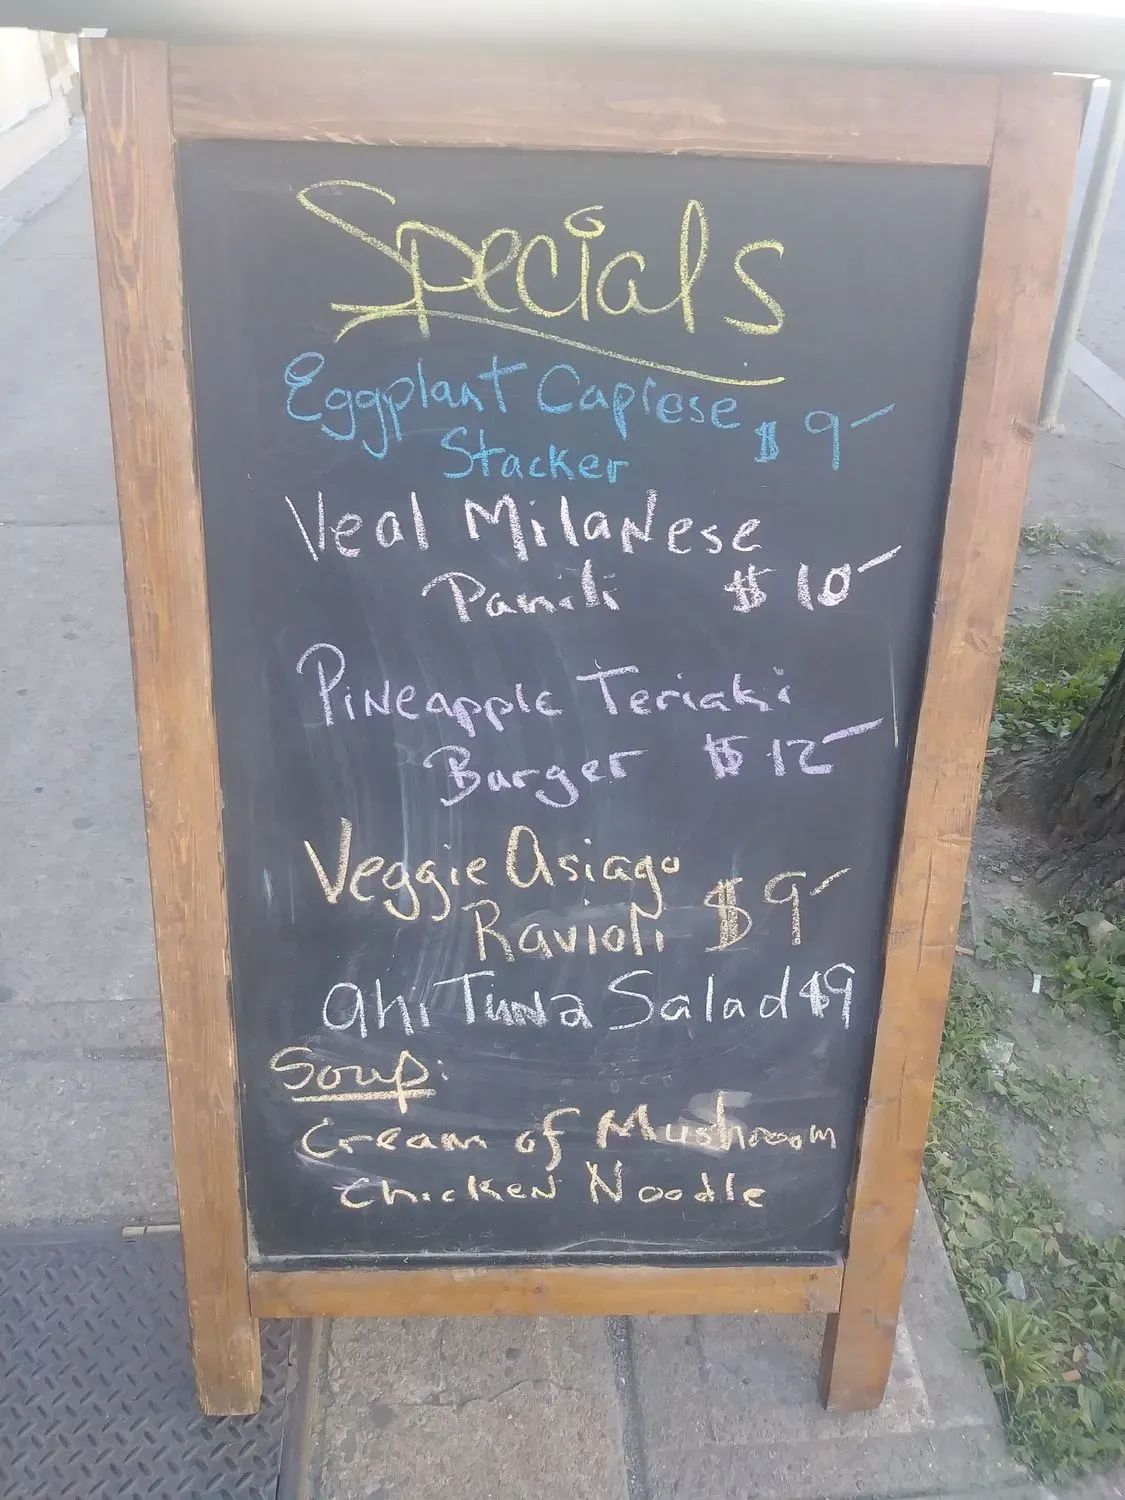 Specials
Eggplant Caprese $9-
Stacker
Veal Milanese
Panini $10-
Pineapple Teriaki
Burger $12-
Veggie Asiago
Ravioli $9-
Ahi Tuna Salad $9
Soup:
Cream of Mushroom
Chicken Noodle